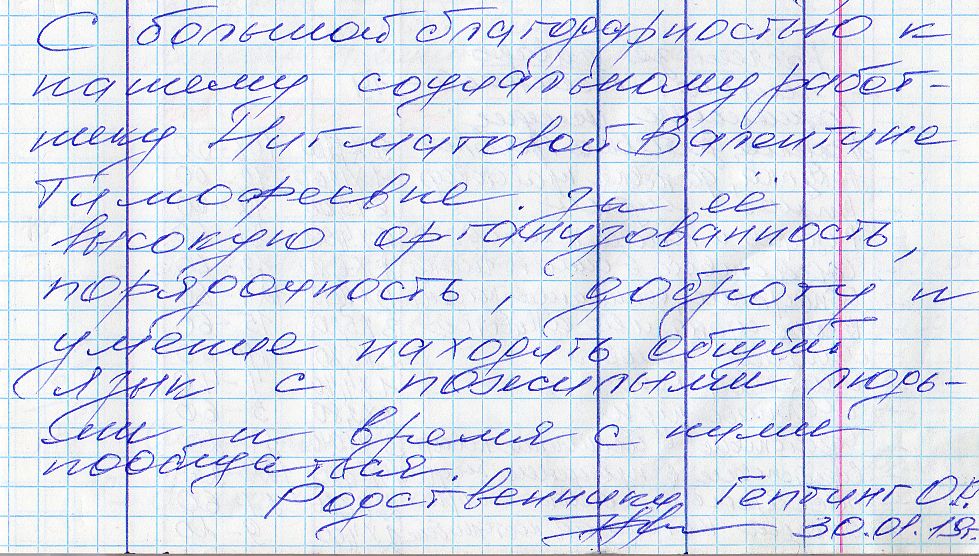 С большой благодарностью к
нашему социальному работ-
нику Нигматовой Валентине
Тимофеевне. за её
высокую организованность,
порядочность, доброту и
умение находить общий
язык с пожилыми людь-
ми и время с ними
пообщаться.
Родственники Гептинг О.
30.01.19г.